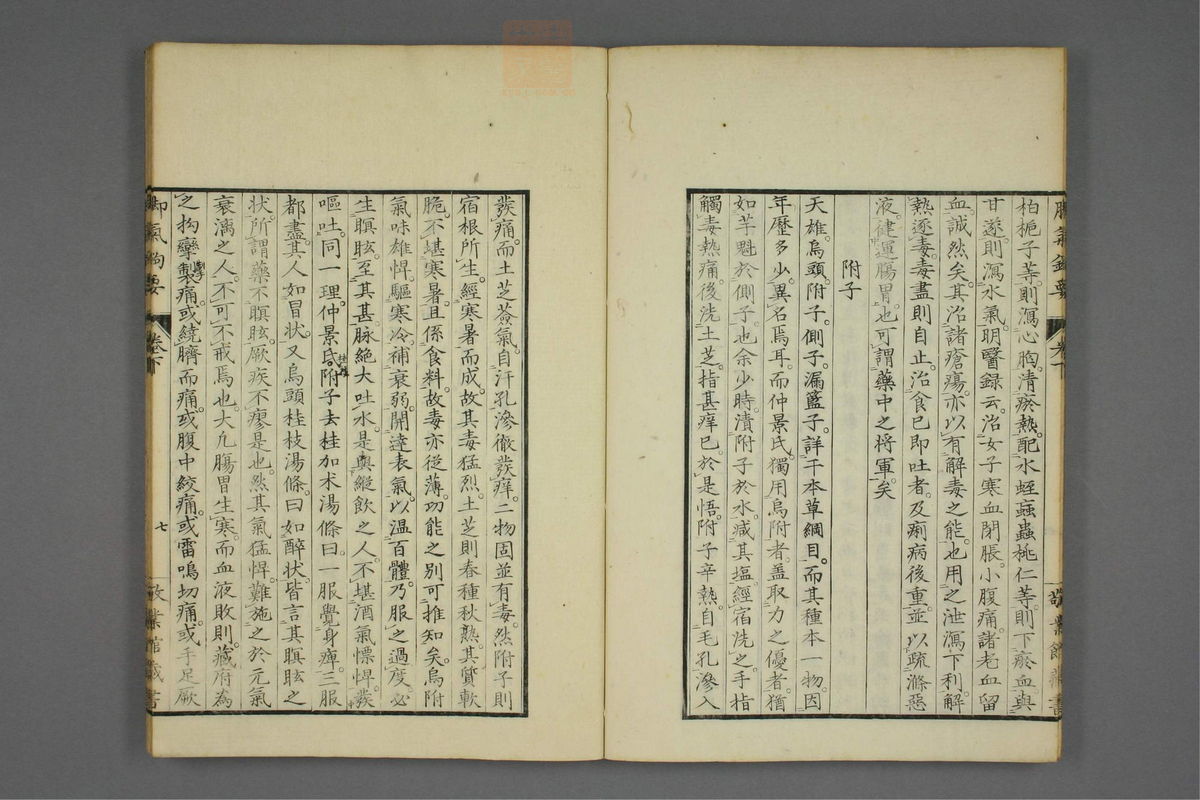 柏梔子等則瀉心胸清瘀熱配水蛭蝱蟲桃仁等則下瘀血與
甘遂則瀉水氣明醫録云治女子寒血閉脹小腹痛諸老血留
血誠然矣其治諸瘡瘍亦以有解毒之能也用之泄瀉下利解
熱逐毒毒盡則自止治食已即吐者及痢病後重並以疏滌惡
液健運腸胃也可謂藥中之将軍矣
附子
天雄烏頭附子側子漏籃子詳于本草綱目而其種本一物因
年歷多少異名焉耳而仲景氏獨用烏附者盖取力之優者猶
如芋魁於側子也余少時漬附子於水減其塩經宿洗之手指
觸毒熱痛後洗土芝指甚痒已於是悟附子辛熱自毛孔滲入
發痛而土芝薟氣自汗孔滲徹發痒二物固並有毒然附子則
宿根所生經寒暑而成故其毒猛烈土芝則春種秋熟其質軟
脆不堪寒暑且係食料故毒亦従薄功能之別可推知矣烏附
氣味雄悍驅寒冷補衰弱開達表氣以温百體乃服之過度必
生瞑眩至其甚脉絶大吐水是與縱飲之人不堪酒氣慓悍發
嘔吐同一理仲景氏附子去桂加术湯條曰一服覺身痺三服
都盡其人如冒状又烏頭桂枝湯條曰如醉状皆言其瞑眩之
状所謂藥不瞑眩厥疾不瘳是也然其氣猛悍難施之於元氣
衰漓之人不可不戒焉也大凡腸胃生寒而血液敗則藏府為
之拘攣製痛或繞臍而痛或腹中絞痛或雷鳴切痛或手足厥
卷下
七